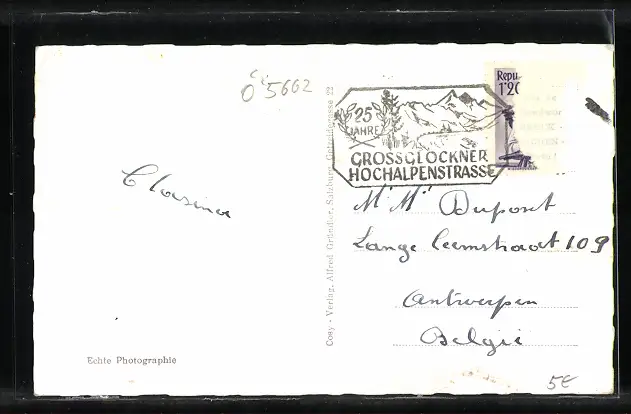 Ö 5662
Repu
1'20
25
JAHRE
GROSSGLOCKNER
HOCHALPENSTRASSE
Mr Mr Dupont
Lange Leemstraat 109
Antwerpen
België
Cosy - Verlag, Alfred Gründler, Salzburg, 22
Echte Photographie
5€